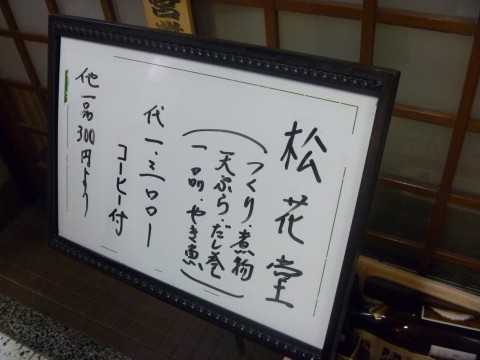 松花堂
(つくり・煮物
天ぷら・だし巻
一品・やき魚)
代一・三〇〇ー
コーヒー付
他一品300円より
営業